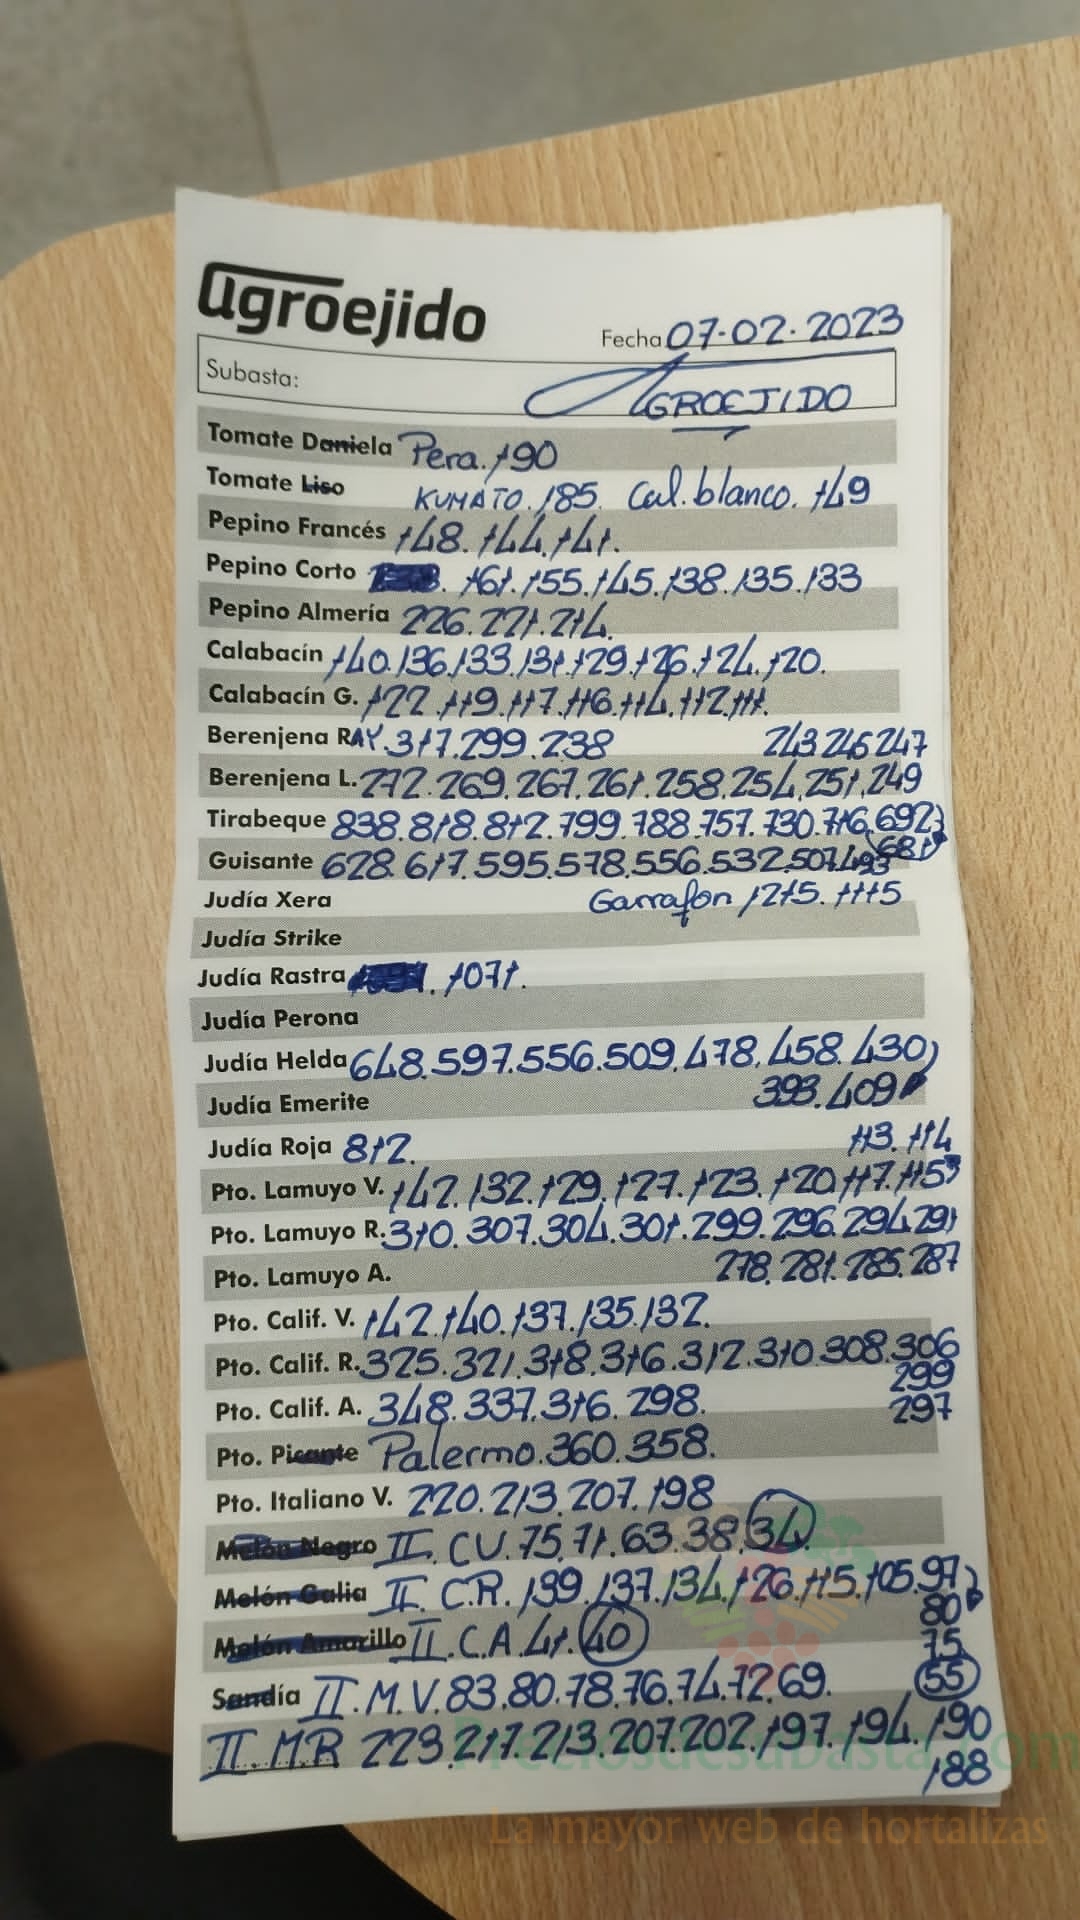 agroejido
Fecha 07-02-2023
Subasta: AGROEJIDO
Tomate Daniela Pera. 190
Tomate Liso KUMATO. 185. Cal. blanco. 149
Pepino Francés 148. 144. 141.
Pepino Corto . 161. 155. 145. 138. 135. 133
Pepino Almería 226. 221. 214.
Calabacín 140. 136. 133. 131. 129. 126. 124. 120.
Calabacín G. 122. 119. 117. 116. 114. 112. 111.
Berenjena RAY. 317. 299. 238 243 246 247
Berenjena L. 272. 269. 267. 261. 258. 254. 251. 249
Tirabeque 838. 818. 812. 799. 788. 757. 730. 716. 692
681
Guisante 628. 617. 595. 578. 556. 532. 507. 493
Judía Xera Garrafon 1215. 1115
Judía Strike
Judía Rastra . 1071.
Judía Perona
Judía Helda 648. 597. 556. 509. 478. 458. 430
Judía Emerite 393. 409
Judía Roja 812. 113. 114
Pto. Lamuyo V. 142. 132. 129. 127. 123. 120. 117. 115
Pto. Lamuyo R. 310. 307. 304. 301. 299. 296. 294. 291
Pto. Lamuyo A. 278. 281. 285. 287
Pto. Calif. V. 142. 140. 137. 135. 132.
Pto. Calif. R. 325. 321. 318. 316. 312. 310. 308. 306
299
Pto. Calif. A. 348. 337. 316. 298. 297
Pto. Picante Palermo. 360. 358.
Pto. Italiano V. 220. 213. 207. 198
Melón Negro II. CV. 75. 71. 63. 38. 34
Melón Galia II. C.R. 139. 137. 134. 126. 115. 105. 97
80
Melón Amarillo II. C.A. 41. 40 75
Sandía II. M.V. 83. 80. 78. 76. 74. 72. 69. 55
II. MR 223. 217. 213. 207. 202. 197. 194. 190
188
Preciosdesubasta.com
La mayor web de hortalizas